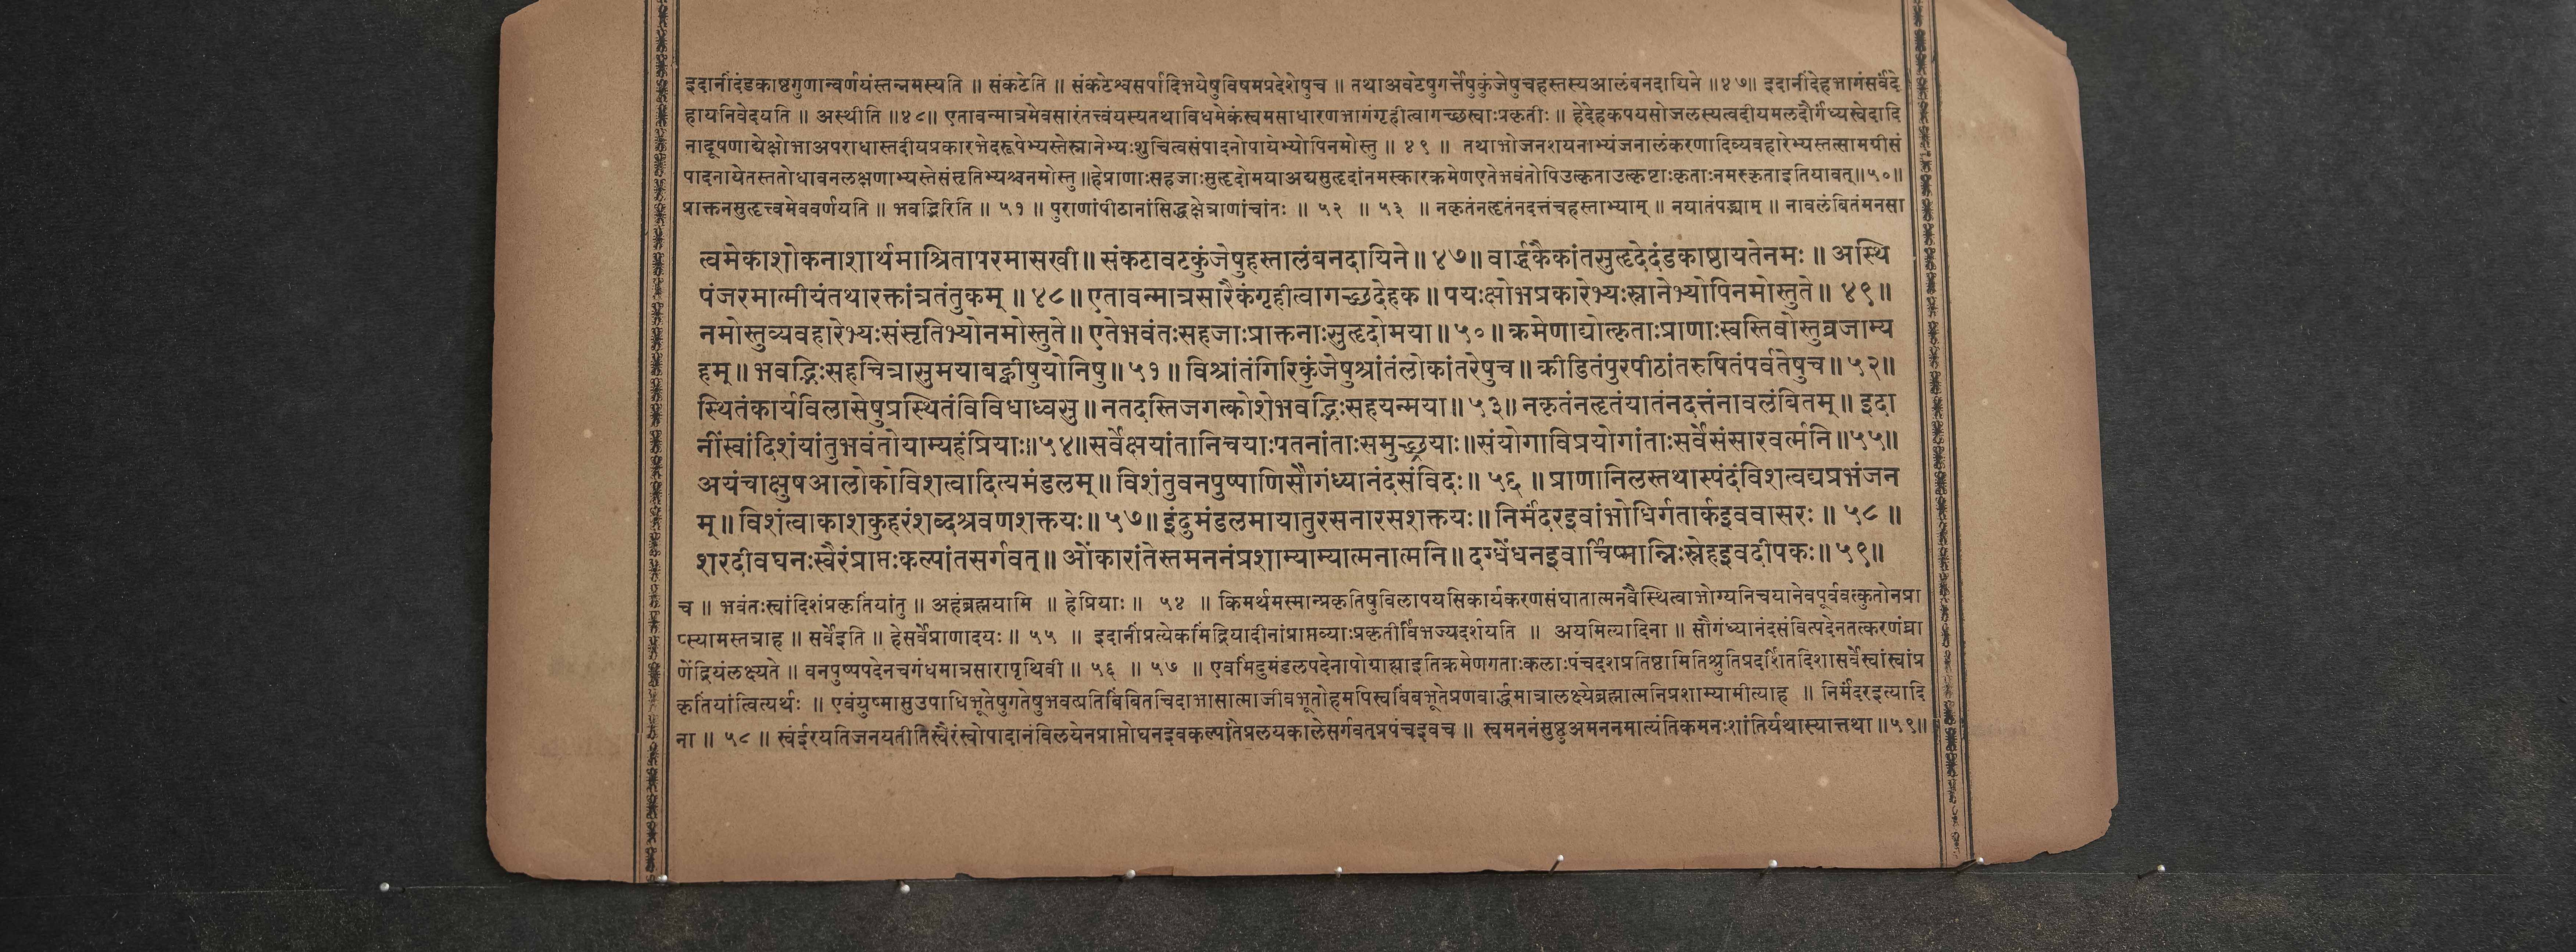 इदानींदंडकाष्ठगुणान्वर्णयंस्तन्नमस्यति ॥ संकटेति ॥ संकटेश्वसर्पादिभयेषुविषमप्रदेशेषुच ॥ तथाअवटेषुगर्त्तेषुकुंजेषुचहस्तस्यआलंबनदायिने ॥४७॥ इदानींदेहभागंसर्वंदे
हायनिवेदयति ॥ अस्थीति ॥४८॥ एतावन्मात्रमेवसारंतत्त्वंयस्यतथाविधमेकंस्वमसाधारणभागंगृहीत्वागच्छस्वाःप्रकृतीः ॥ हेदेहकपयसोजलस्यत्वदीयमलदौर्गंध्यस्वेदादि
नादूषणाद्येक्षोभाअपराधास्तदीयप्रकारभेदरूपेभ्यस्तेस्नानेभ्यःशुचित्वसंपादनोपायेभ्योपिनमोस्तु ॥ ४९ ॥ तथाभोजनशयनाभ्यंजनालंकरणादिव्यवहारेभ्यस्तत्सामग्रीसं
पादनायेतस्ततोधावनलक्षणाभ्यस्तेसंसृतिभ्यश्चनमोस्तु ॥हेप्राणाःसहजाःसुहृदोमयाअद्यसुहृदांनमस्कारक्रमेणएतेभवंतोपिउत्कृताउत्कृष्टाःकृताःनमस्कृताइतियावत्॥५०॥
प्राक्तनसुहृत्त्वमेववर्णयति ॥ भवद्भिरिति ॥ ५१ ॥ पुराणांपीठानांसिद्धक्षेत्राणांचांतः ॥ ५२ ॥ ५३ ॥ नकृतंनहृतंनदत्तंचहस्ताभ्याम् ॥ नयातंपद्भ्याम् ॥ नावलंबितंमनसा
त्वमेकाशोकनाशार्थमाश्रितापरमासखी॥ संकटावटकुंजेषुहस्तालंबनदायिने॥ ४७॥ वार्द्धकैकांतसुहृदेदंडकाष्ठायतेनमः ॥ अस्थि
पंजरमात्मीयंतथारक्तांत्रतंतुकम् ॥ ४८॥ एतावन्मात्रसारैकंगृहीत्वागच्छदेहक॥ पयःक्षोभप्रकारेभ्यःस्नानेभ्योपिनमोस्तुते॥ ४९॥
नमोस्तुव्यवहारेभ्यःसंसृतिभ्योनमोस्तुते॥ एतेभवंतःसहजाःप्राक्तनाःसुहृदोमया॥ ५०॥ क्रमेणाद्योत्कृताःप्राणाःस्वस्तिवोस्तुव्रजाम्य
हम्॥ भवद्भिःसहचित्रासुमयाबह्वीषुयोनिषु॥ ५१॥ विश्रांतंगिरिकुंजेषुश्रांतंलोकांतरेषुच॥ क्रीडितंपुरपीठांतरुषितंपर्वतेषुच॥ ५२॥
स्थितंकार्यविलासेषुप्रस्थितंविविधाध्वसु॥ नतदस्तिजगत्कोशेभवद्भिःसहयन्मया॥ ५३॥ नकृतंनहृतंयातंनदत्तंनावलंबितम्॥ इदा
नींस्वांदिशंयांतुभवंतोयाम्यहंप्रियाः॥५४॥सर्वेक्षयांतानिचयाःपतनांताःसमुच्छ्रयाः॥संयोगाविप्रयोगांताःसर्वेसंसारवर्त्मनि॥५५॥
अयंचाक्षुषआलोकोविशत्वादित्यमंडलम्॥ विशंतुवनपुष्पाणिसौगंध्यानंदसंविदः॥ ५६ ॥ प्राणानिलस्तथास्पंदंविशत्वद्यप्रभंजन
म्॥ विशंत्वाकाशकुहरंशब्दश्रवणशक्तयः॥ ५७॥ इंदुमंडलमायातुरसनारसशक्तयः॥ निर्मंदरइवांभोधिर्गतार्कइववासरः ॥ ५८ ॥
शरदीवघनःस्वैरंप्राप्तःकल्पांतसर्गवत्॥ ओंकारांतेस्तमननंप्रशाम्याम्यात्मनात्मनि॥ दग्धेंधनइवार्चिष्मान्निःस्नेहइवदीपकः॥ ५९॥
च ॥ भवंतःस्वांदिशंप्रकृतिंयांतु ॥ अहंब्रह्मयामि ॥ हेप्रियाः ॥ ५४ ॥ किमर्थमस्मान्प्रकृतिषुविलापयसिकार्यकरणसंघातात्मनवैस्थित्वाभोग्यनिचयानेवपूर्ववत्कुतोनप्रा
प्स्यामस्तत्राह ॥ सर्वेइति ॥ हेसर्वेप्राणादयः ॥ ५५ ॥ इदानींप्रत्येकमिंद्रियादीनांप्राप्तव्याःप्रकृतीर्विभज्यदर्शयति ॥ अयमित्यादिना ॥ सौगंध्यानंदसंवित्पदेनतत्करणंघ्रा
णेंद्रियंलक्ष्यते ॥ वनपुष्पपदेनचगंधमात्रसारापृथिवी ॥ ५६ ॥ ५७ ॥ एवमिंदुमंडलपदेनापोग्राह्याइतिक्रमेणगताःकलाःपंचदशप्रतिष्ठामितिश्रुतिप्रदर्शितदिशासर्वेस्वांस्वांप्र
कृतिंयांत्वित्यर्थः ॥ एवंयुष्मासुउपाधिभूतेषुगतेषुभवत्प्रतिबिंबितचिदाभासात्माजीवभूतोहमपिस्वबिंबभूतेप्रणवार्द्धमात्रालक्ष्येब्रह्मात्मनिप्रशाम्यामीत्याह ॥ निर्मंदरइत्यादि
ना ॥ ५८ ॥ स्वंईरयतिजनयतीतिस्वैरंस्वोपादानंविलयेनप्राप्तोघनइवकल्पांतेप्रलयकालेसर्गवत्प्रपंचइवच ॥ स्वमननंसुष्ठुअमननमात्यंतिकमनःशांतिर्यथास्यात्तथा ॥५९॥